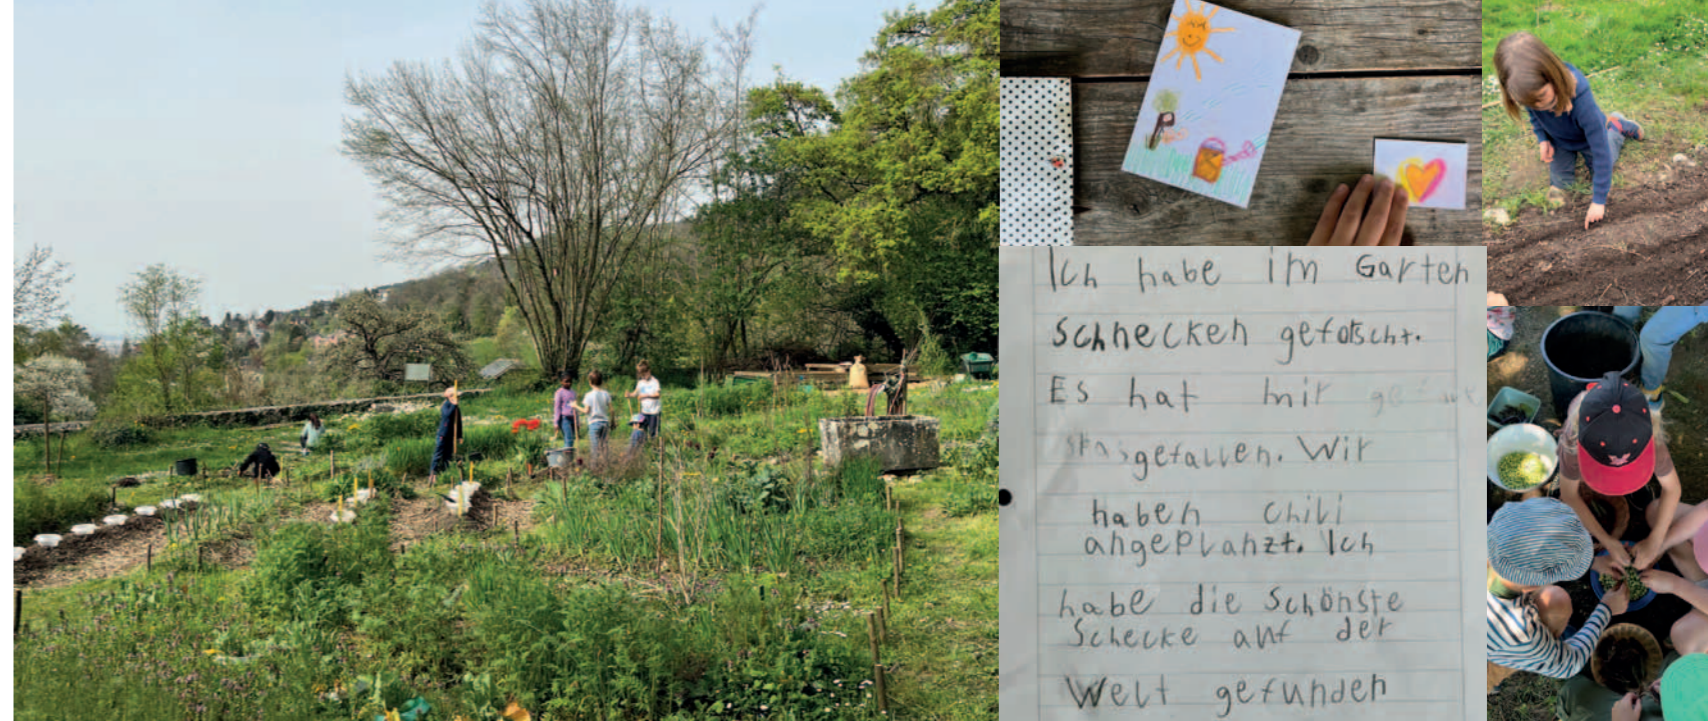 Ich habe im Garten
Schnecken geforscht.
Es hat mir
gefallen. Wir
haben chili
angeplanzt. Ich
habe die Schönste
Schecke auf der
Welt gefunden